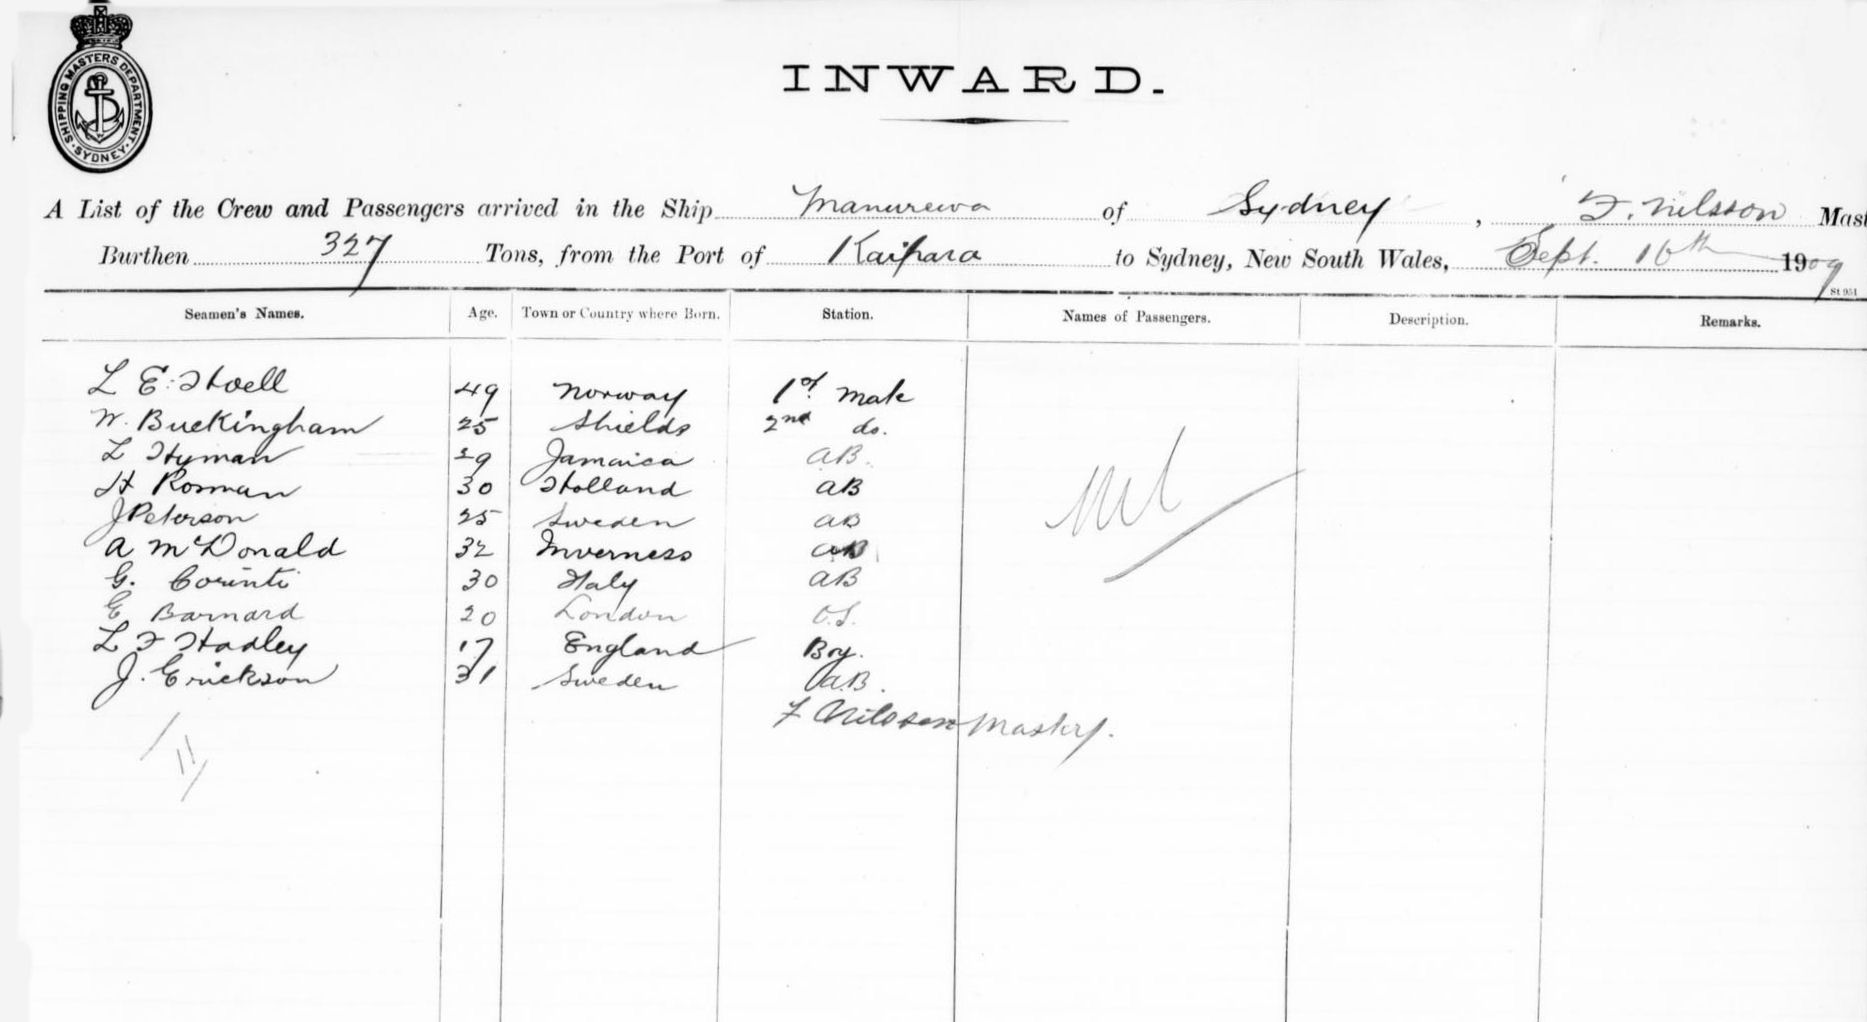 SHIPPING MASTERS DEPARTMENT
SYDNEY
INWARD.
A List of the Crew and Passengers arrived in the Ship Manurewa of Sydney, F. Nilsson Mast
Burthen 327 Tons, from the Port of Kaipara to Sydney, New South Wales, Sept. 16th 1909
St 951
Seamen's Names. Age. Town or Country where Born. Station. Names of Passengers. Description. Remarks.
L E. Hoell 49 Norway 1st mate
W. Buckingham 25 Shields 2nd do.
L Hyman 29 Jamaica AB.
H Rosman 30 Holland AB
J Peterson 25 Sweden AB
A McDonald 32 Inverness AB
G. Corinti 30 Italy AB
E Barnard 20 London O.S.
L F Hadley 17 England Boy.
J. Erickson 31 Sweden AB.
Nil
F Nilsson Master.
11